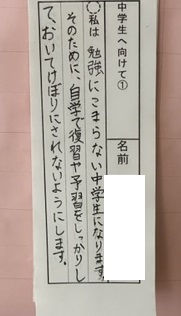 中学生へ向けて①
名前
私は勉強にこまらない中学生になります。
そのために、自学で復習や予習をしっかりし
て、おいてけぼりにされないようにします。